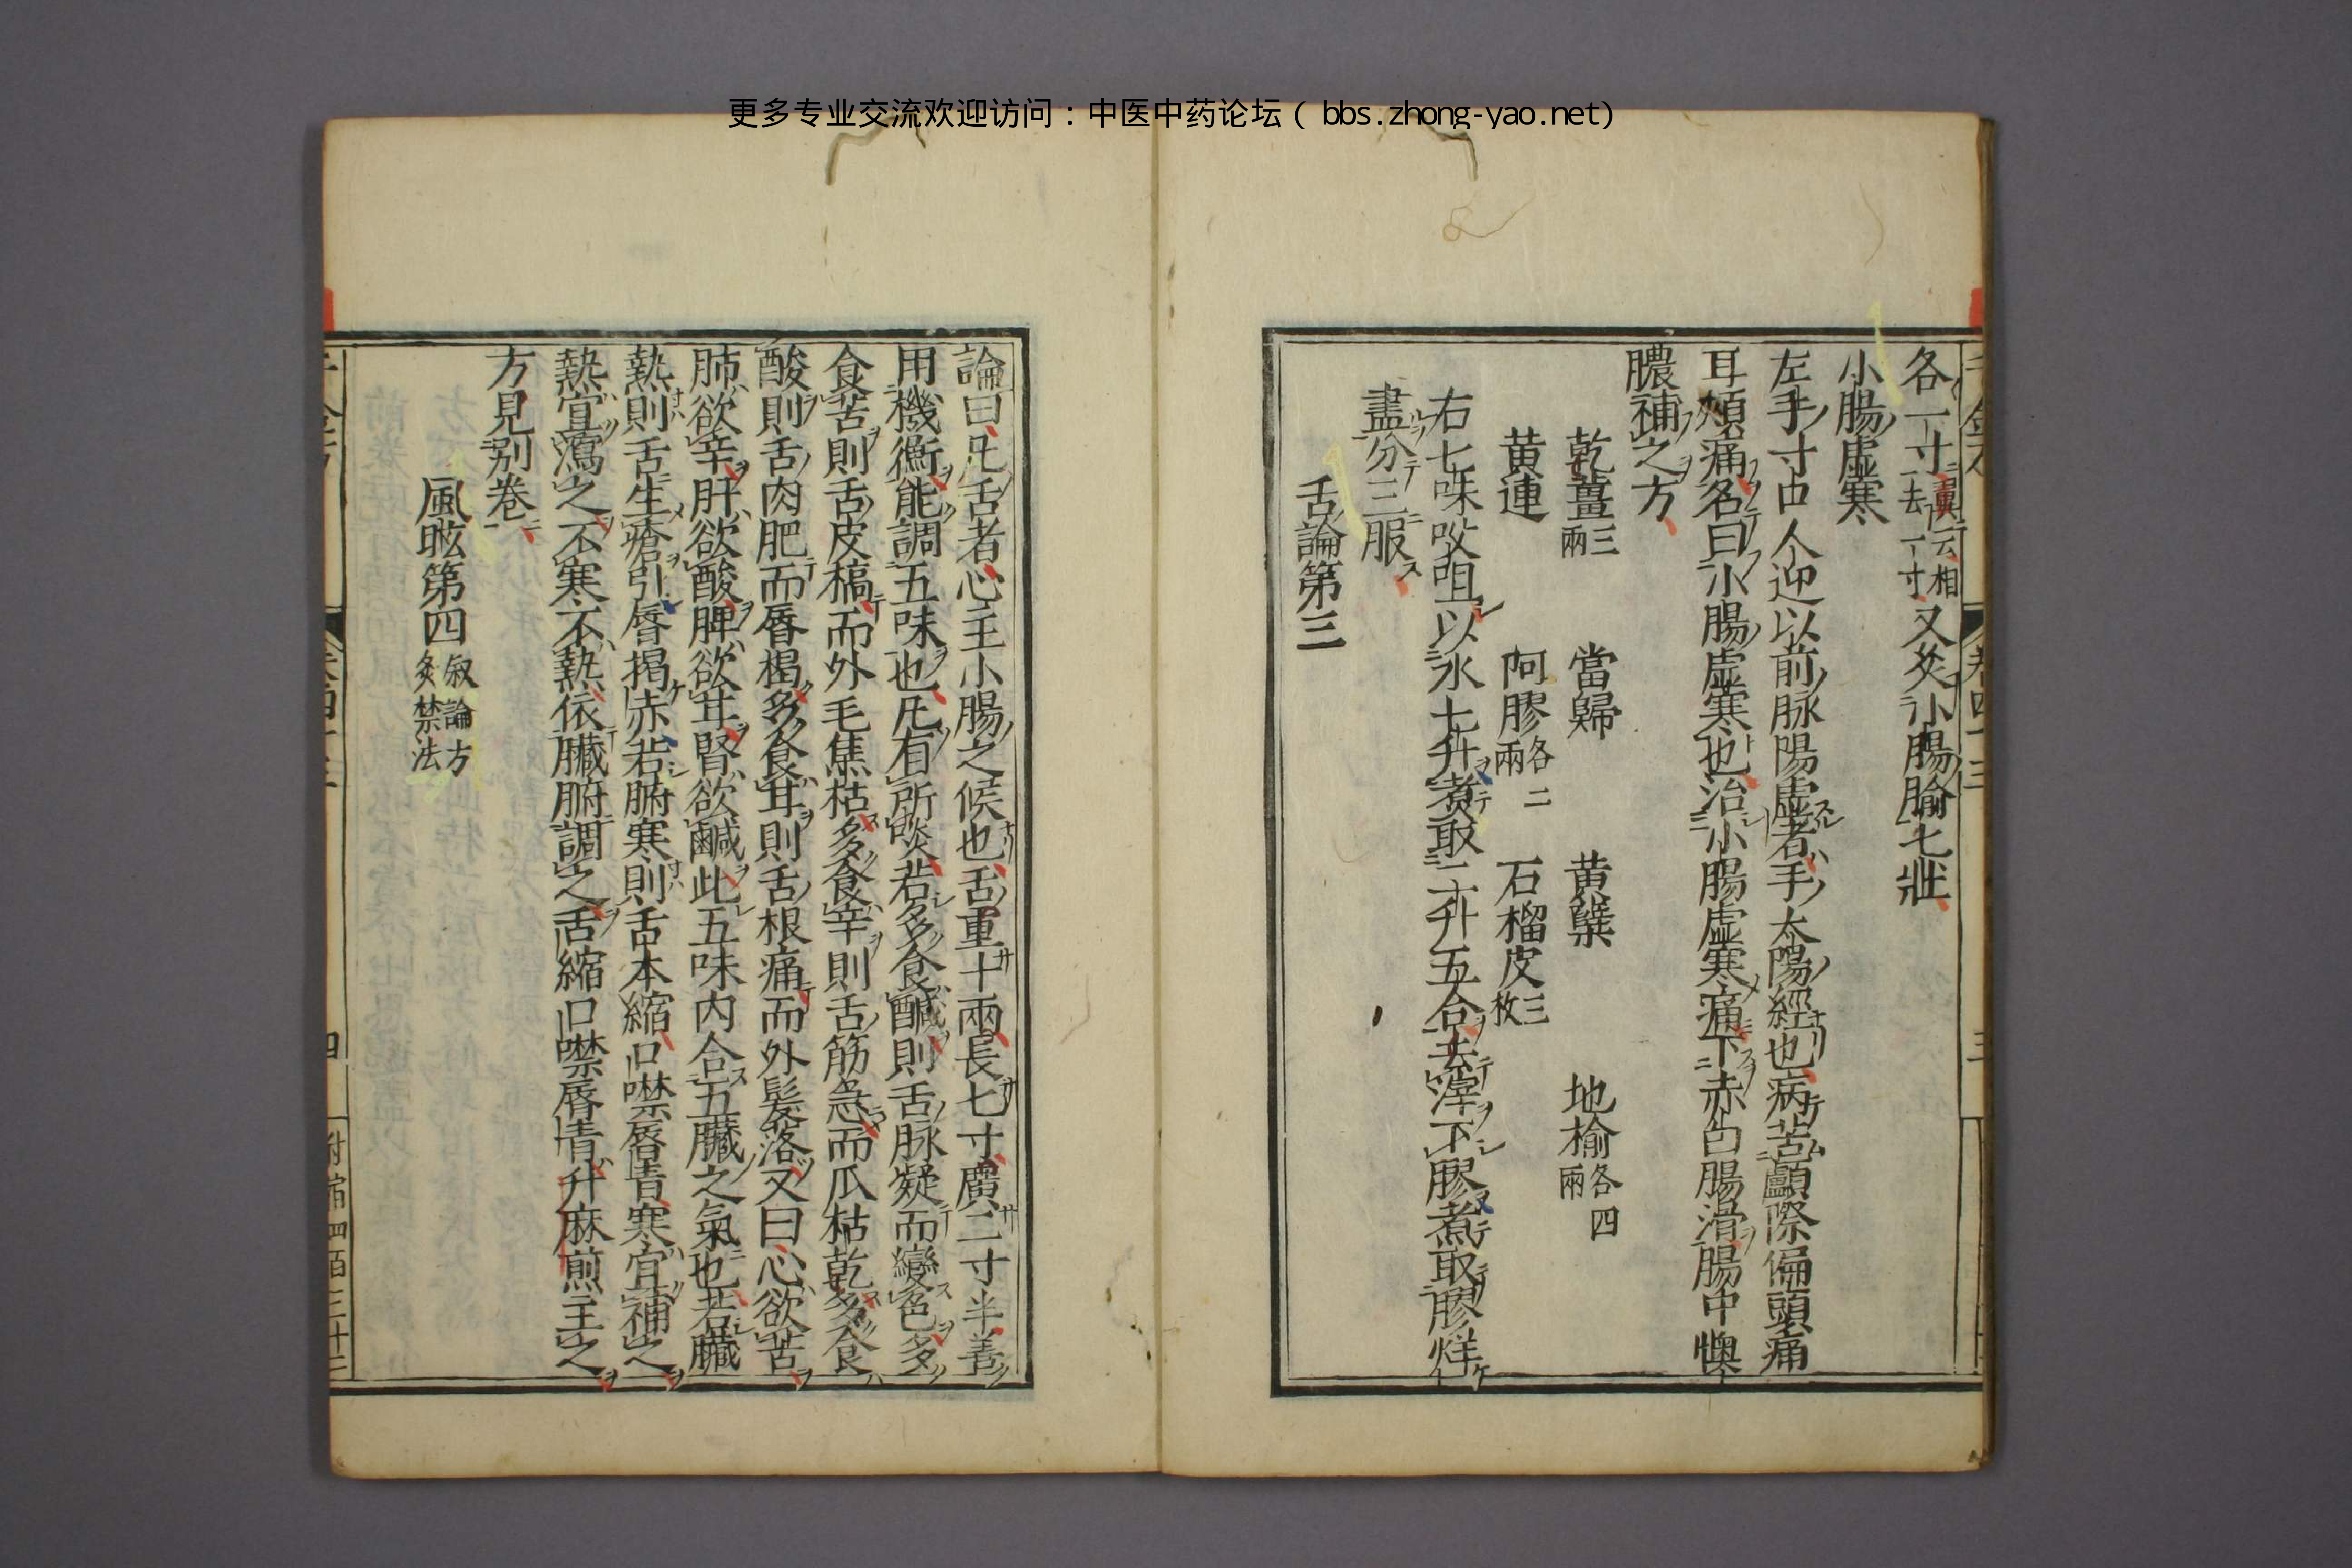 更多专业交流欢迎访问：中医中药论坛（ bbs.zhong-yao.net）
各一寸翼云相去一寸又灸小腸腧七壯
小腸虛寒
左手寸口人迎以前脉陽虛者手太陽經也病苦顱際偏頭痛
耳頰痛名曰小腸虛寒也治小腸虛寒痛下赤白腸滑腸中懊
膿補之方
乾薑三兩 當歸 黄蘖 地榆各四兩
黄連 阿膠各二兩 石榴皮三枚
右七味㕮咀以水七升煮取二升五合去滓下膠煮取膠烊
盡分三服
舌論第三
論曰凡舌者心主小腸之候也舌重十兩長七寸廣二寸半善
用機衡能調五味也凡有所啖若多食鹹則舌脉凝而變色多
食苦則舌皮槁而外毛焦枯多食辛則舌筋急而爪枯乾多食
酸則舌肉肥而脣楬多食甘則舌根痛而外髮落又曰心欲苦
肺欲辛肝欲酸脾欲甘腎欲鹹此五味内合五臟之氣也若臟
熱則舌生瘡引脣揭赤若腑寒則舌本縮口噤脣青寒宜補之
熱宜瀉之不寒不熱依臟腑調之舌縮口噤脣青升麻煎主之
方見别卷
風眩第四叙論方灸禁法
卷四十三
四